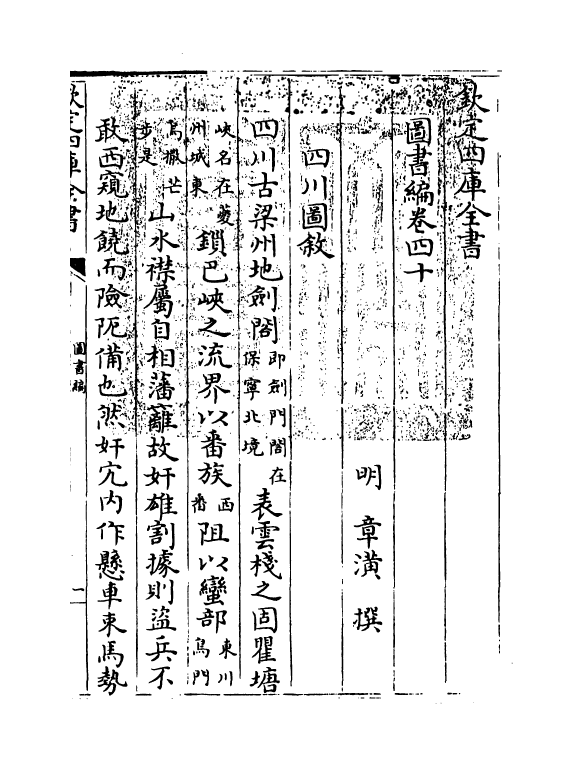 欽定四庫全書
圖書編卷四十
明 章潢 撰
四川圖敘
四川古梁州地劍閣即劍門閣在保寧北境表雲棧之固瞿塘
峽名在夔州城東鎖巴峽之流界以番族西番阻以蠻部東川烏門
烏撒芒步是山水襟屬自相藩籬故奸雄割據則盜兵不
敢西窺地饒而險阨備也然奸宄内作懸車束馬勢
欽定四庫全書
圖書編
一